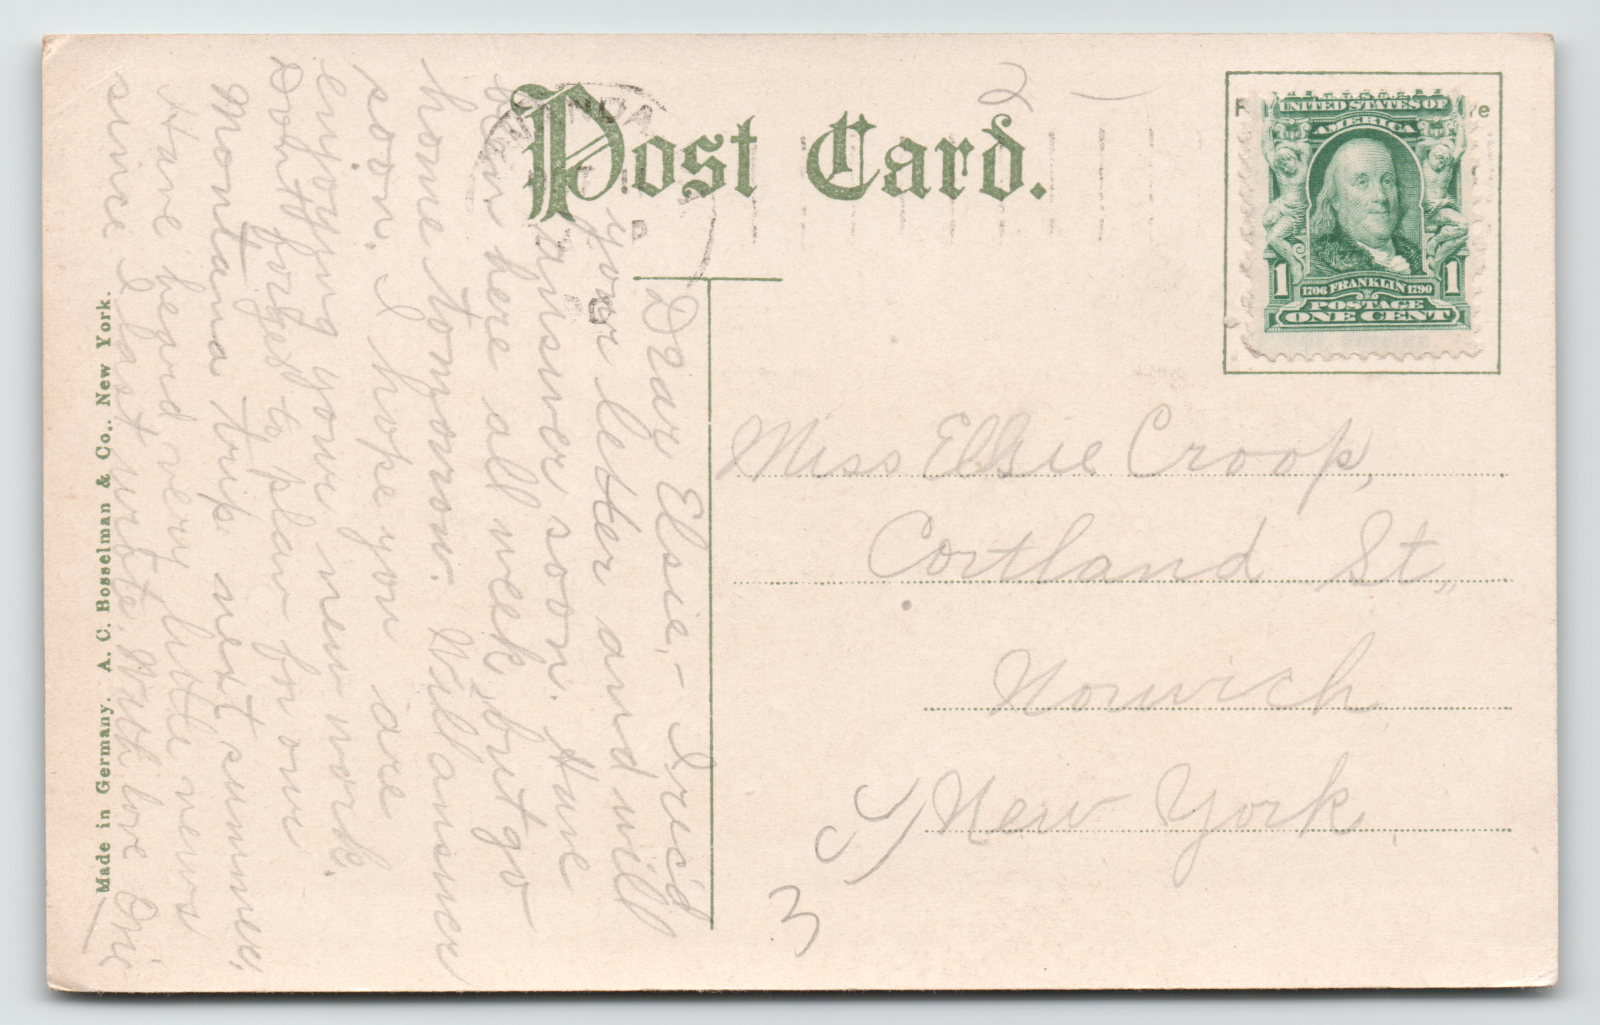 Post Card.
UNITED STATES OF
AMERICA
1706 FRANKLIN 1790
1 1
POSTAGE
ONE CENT
Miss Elsie Croop,
Cortland St.,
Norwich,
New York,
3
Dear Elsie,- I rec'd
your letter and will
answer soon. Have
been here all week, but go
home tomorrow. Will answer
soon. I hope you are
enjoying your new work.
Don't forget to plan for our
Montana trip next summer.
Have heard very little news
since I last wrote. With love
Made in Germany. A. C. Bosselman & Co., New York.